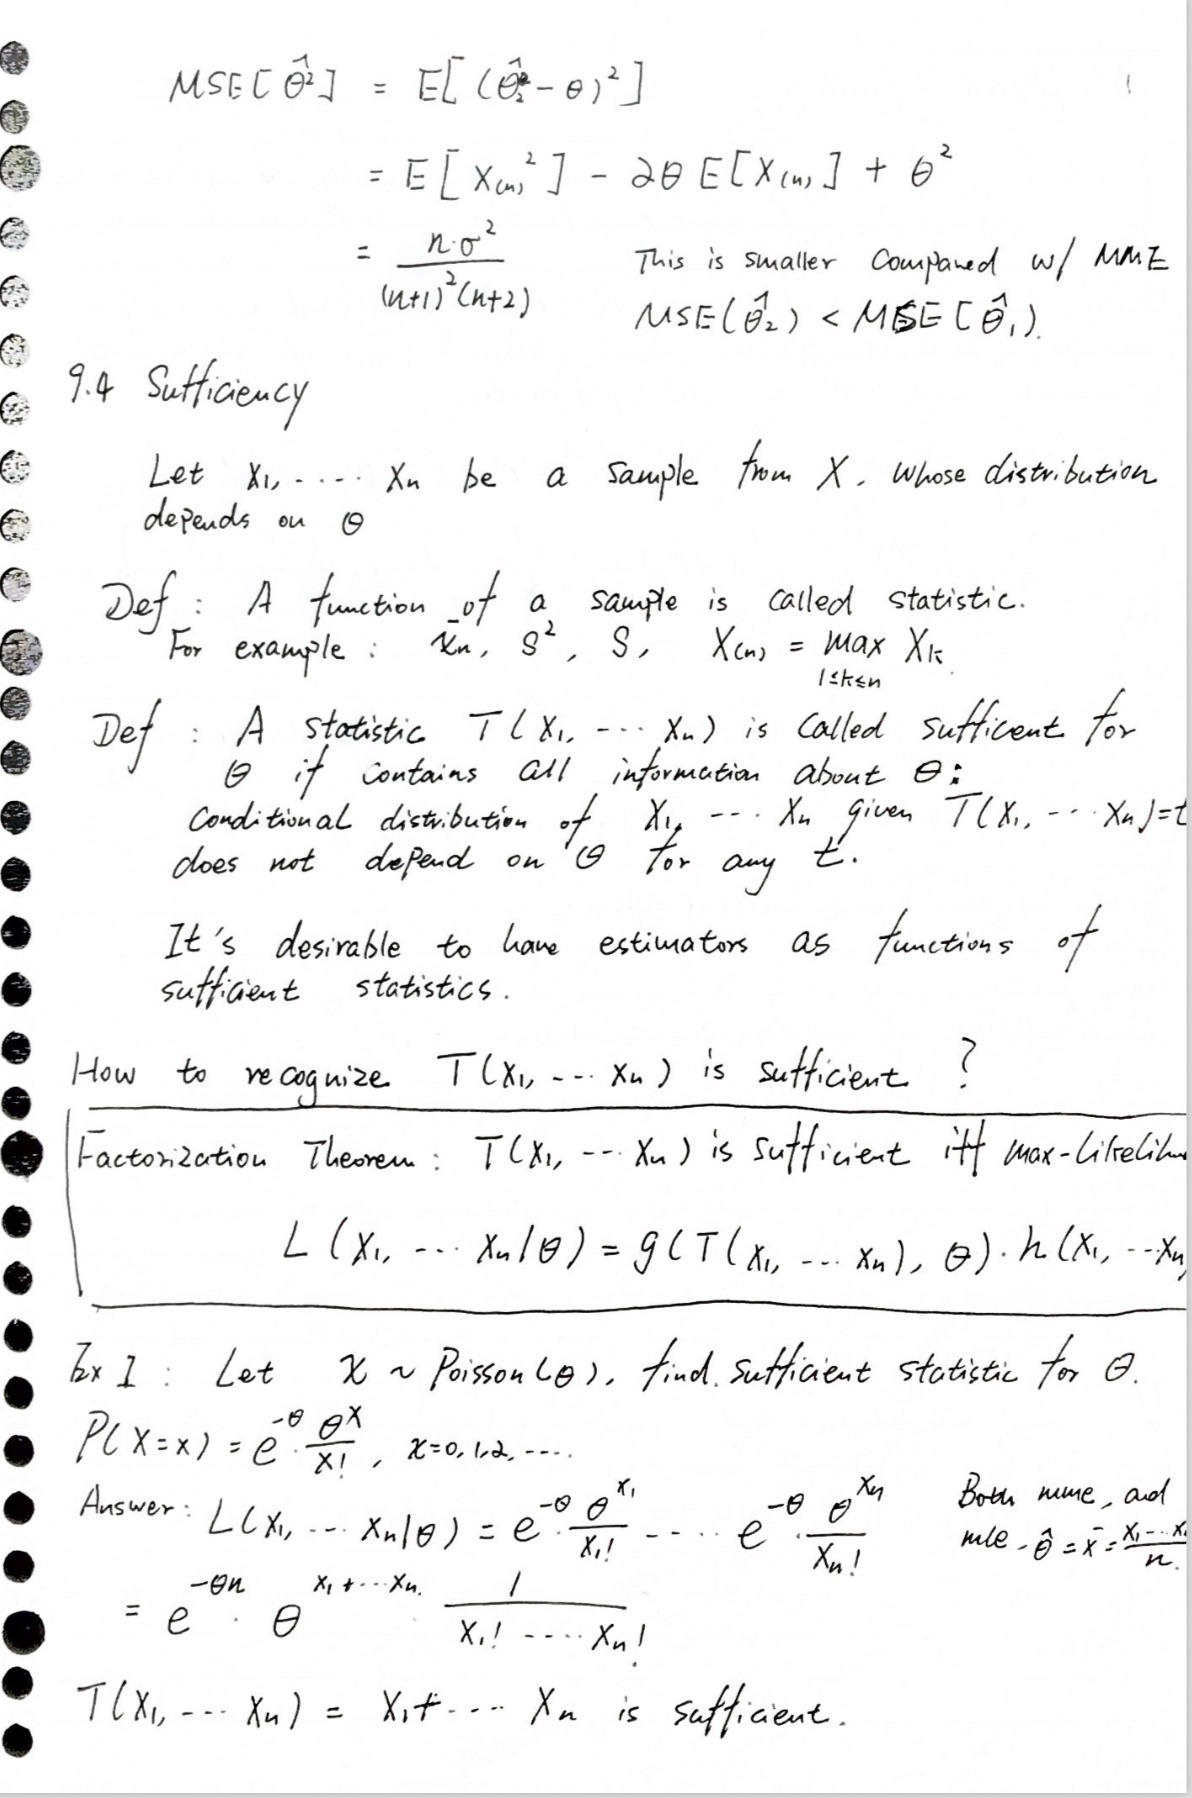 MSE[θ̂²] = E[(θ̂₂ - θ)²]
= E[X(n)²] - 2θ E[X(n)] + θ²
= n·σ² / (n+1)²(n+2)
This is smaller compared w/ MME
MSE(θ̂₂) < MSE[θ̂₁).
9.4 Sufficiency
Let X₁, ..... Xn be a sample from X. whose distribution
depends on θ
Def : A function of a sample is called statistic.
For example : x̄n, S², S, X(n) = max Xk
1≤k≤n
Def : A statistic T(X₁, .... Xn) is called sufficent for
θ if contains all information about θ:
conditional distribution of X₁, .... Xn given T(X₁, .... Xn)=t
does not depend on θ for any t.
It's desirable to have estimators as functions of
sufficient statistics.
How to recognize T(X₁, .... Xn) is sufficient ?
Factorization Theorem : T(X₁, .... Xn) is sufficient iff
L(X₁, .... Xn|θ) = g(T(X₁, .... Xn), θ)·h(X₁, ...Xn
Ex 1 : Let X ~ Poisson(θ), find sufficient statistic for θ.
P(X=x) = e^-θ · θ^x / x! , x=0,1,2, ....
Answer : L(X₁, .... Xn|θ) = e^-θ · θ^x₁ / x₁! ..... e^-θ · θ^xn / xn!
Both mme, and
mle - θ̂ = x̄ = x₁...x / n.
= e^-θn · θ^x₁+...xn · 1 / x₁! ..... xn!
T(X₁, .... Xn) = X₁+.... Xn is sufficient.